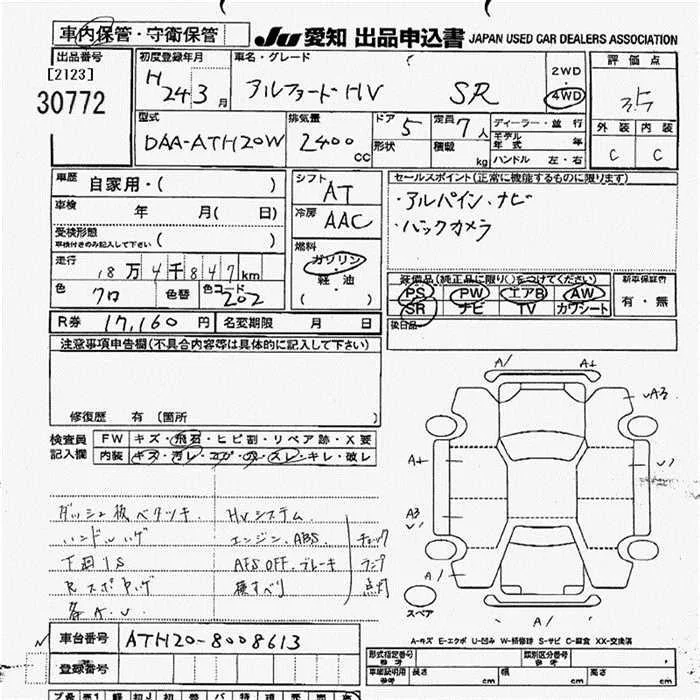 車内保管・守衛保管
JU 愛知 出品申込書 JAPAN USED CAR DEALERS ASSOCIATION
出品番号
[2123]
30772
初度登録年月
H 24 3 月
車名・グレード
アルファードHV SR
2WD
・
4WD
評価点
3.5
外装 内装
C C
型式
DAA-ATH20W
排気量
2400 cc
ドア 5
形状
定員 7 人
積載 kg
ディーラー・並行
モデル年式 年
ハンドル 左・右
車歴 自家用・( )
車検 年 月( 日)
受検形態
車検付きのみ記入して下さい ( )
走行 18万4千847km
色 クロ 色替 色コード 202
シフト AT
冷房 AAC
燃料
ガソリン
軽・油
( )
セールスポイント(正常に機能するものに限ります)
・アルパイン、ナビ
・バックカメラ
装備品(純正品に限り○をつけてください)
PS PW エアB AW
SR ナビ TV カワシート
新車保証書
有・無
後日品
R券 17,160 円 名変期限 月 日
注意事項申告欄(不具合内容等は具体的に記入して下さい)
修復歴 有 (箇所 )
検査員記入欄
FW キズ・飛石・ヒビ割・リペア跡・X要
内装 キズ・汚レ・コゲ・穴・スレ・キレ・破レ
ダッシュ板ベタツキ HVシステム
ハンドルハゲ エンジン、ABS チェック
下回りS AFS OFF、ブレーキ ランプ
横すべり 点灯
各A.U
A/ A+
A3
A+ /
A3
A/
A/
スペア
A-キズ E-エクボ U-凹み W-補修跡 S-サビ C-腐食 XX-交換済
車台番号 ATH20-8008613
登録番号
形式指定番号 類別区分番号
車輌説明書 長さ cm 幅 cm 高さ cm